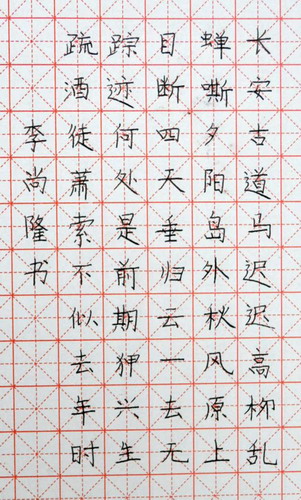 长安古道马迟迟高柳乱
蝉嘶夕阳岛外秋风原上
目断四天垂归云一去无
踪迹何处是前期狎兴生
疏酒徒萧索不似去年时
李尚隆书